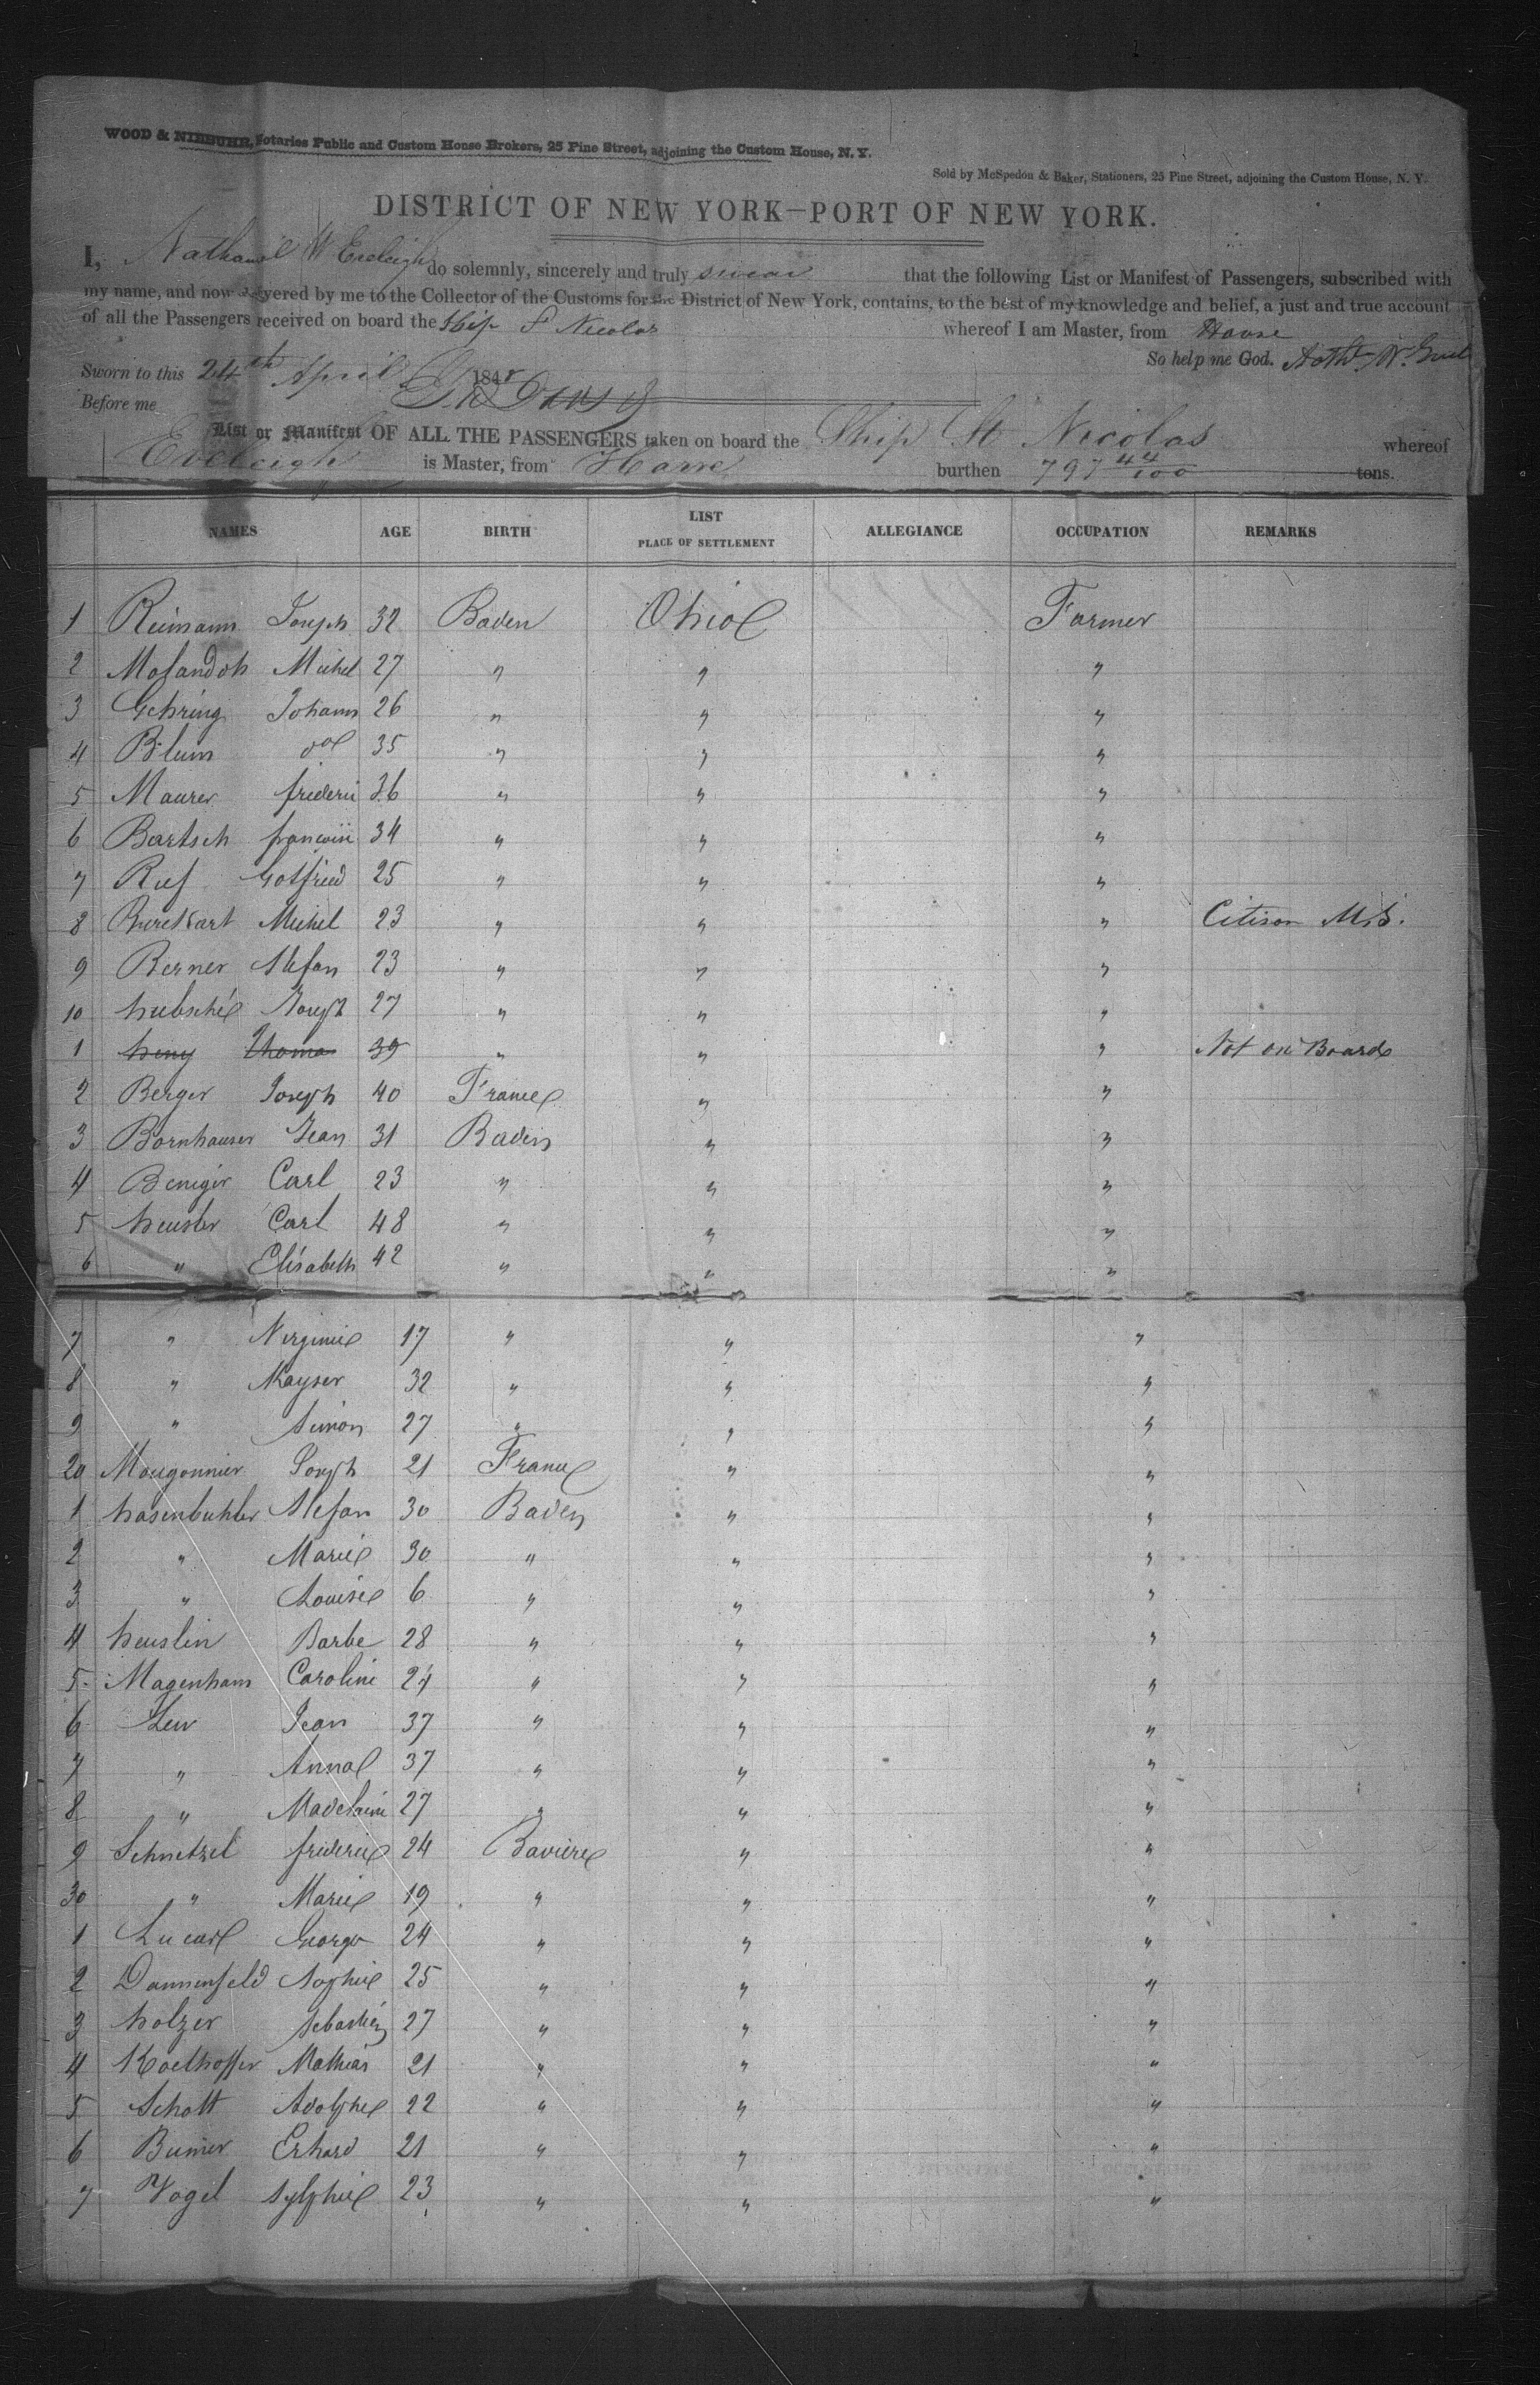 WOOD & NIEBUHR, Notaries Public and Custom House Brokers, 25 Pine Street, adjoining the Custom House, N. Y.
Sold by McSpedon & Baker, Stationers, 25 Pine Street, adjoining the Custom House, N. Y.
DISTRICT OF NEW YORK—PORT OF NEW YORK.
I, Nathaniel W Eveleigh do solemnly, sincerely and truly swear that the following List or Manifest of Passengers, subscribed with
my name, and now delivered by me to the Collector of the Customs for the District of New York, contains, to the best of my knowledge and belief, a just and true account
of all the Passengers received on board the Ship St Nicolas whereof I am Master, from Havre
So help me God. Nathl W.
Sworn to this 24th April 1848
Before me
List or Manifest OF ALL THE PASSENGERS taken on board the Ship St Nicolas whereof
Eveleigh is Master, from Havre burthen 797 44/100 tons.
NAMES AGE BIRTH LIST PLACE OF SETTLEMENT ALLEGIANCE OCCUPATION REMARKS
1 Reimann Joseph 32 Baden Ohio Farmer
2 Mosandoh Michel 27 " " "
3 Gehring Johann 26 " " "
4 Blum do 35 " " "
5 Maurer frideric 36 " " "
6 Bartsch 34 " " "
7 Ruf Gotfried 25 " " "
8 Burckart Michel 23 " " " Citison U.S.
9 Berner Stefan 23 " " "
10 hubsché Joseph 27 " " "
1 heny Thoma 39 " " " Not on Board
2 Berger Joseph 40 France " "
3 Bornhauser Jean 31 Baden " "
4 Beniger Carl 23 " " "
5 heusler Carl 48 " " "
6 " Elisabeth 42 " " "
7 " Virginie 17 " " "
8 " Kayser 32 " " "
9 " Simon 27 " " "
20 Mougonnier Joseph 21 France " "
1 hasenbuhler Stefan 30 Baden " "
2 " Marie 30 " " "
3 " Louise 6 " " "
4 heuslin Barbe 28 " " "
5 Magenham Caroline 24 " " "
6 Leur Jean 37 " " "
7 " Anna 37 " " "
8 " Madelaine 27 " " "
9 Schnetzel frideric 24 Baviere " "
30 " Marie 19 " " "
1 Lucas George 24 " " "
2 Dannenfeld Sophie 25 " " "
3 holzer Sebastien 27 " " "
4 Koelhoffer Mathias 21 " " "
5 Schott Adolphe 22 " " "
6 Bumer Erhard 21 " " "
7 Vogel Sylphie 23 " " "